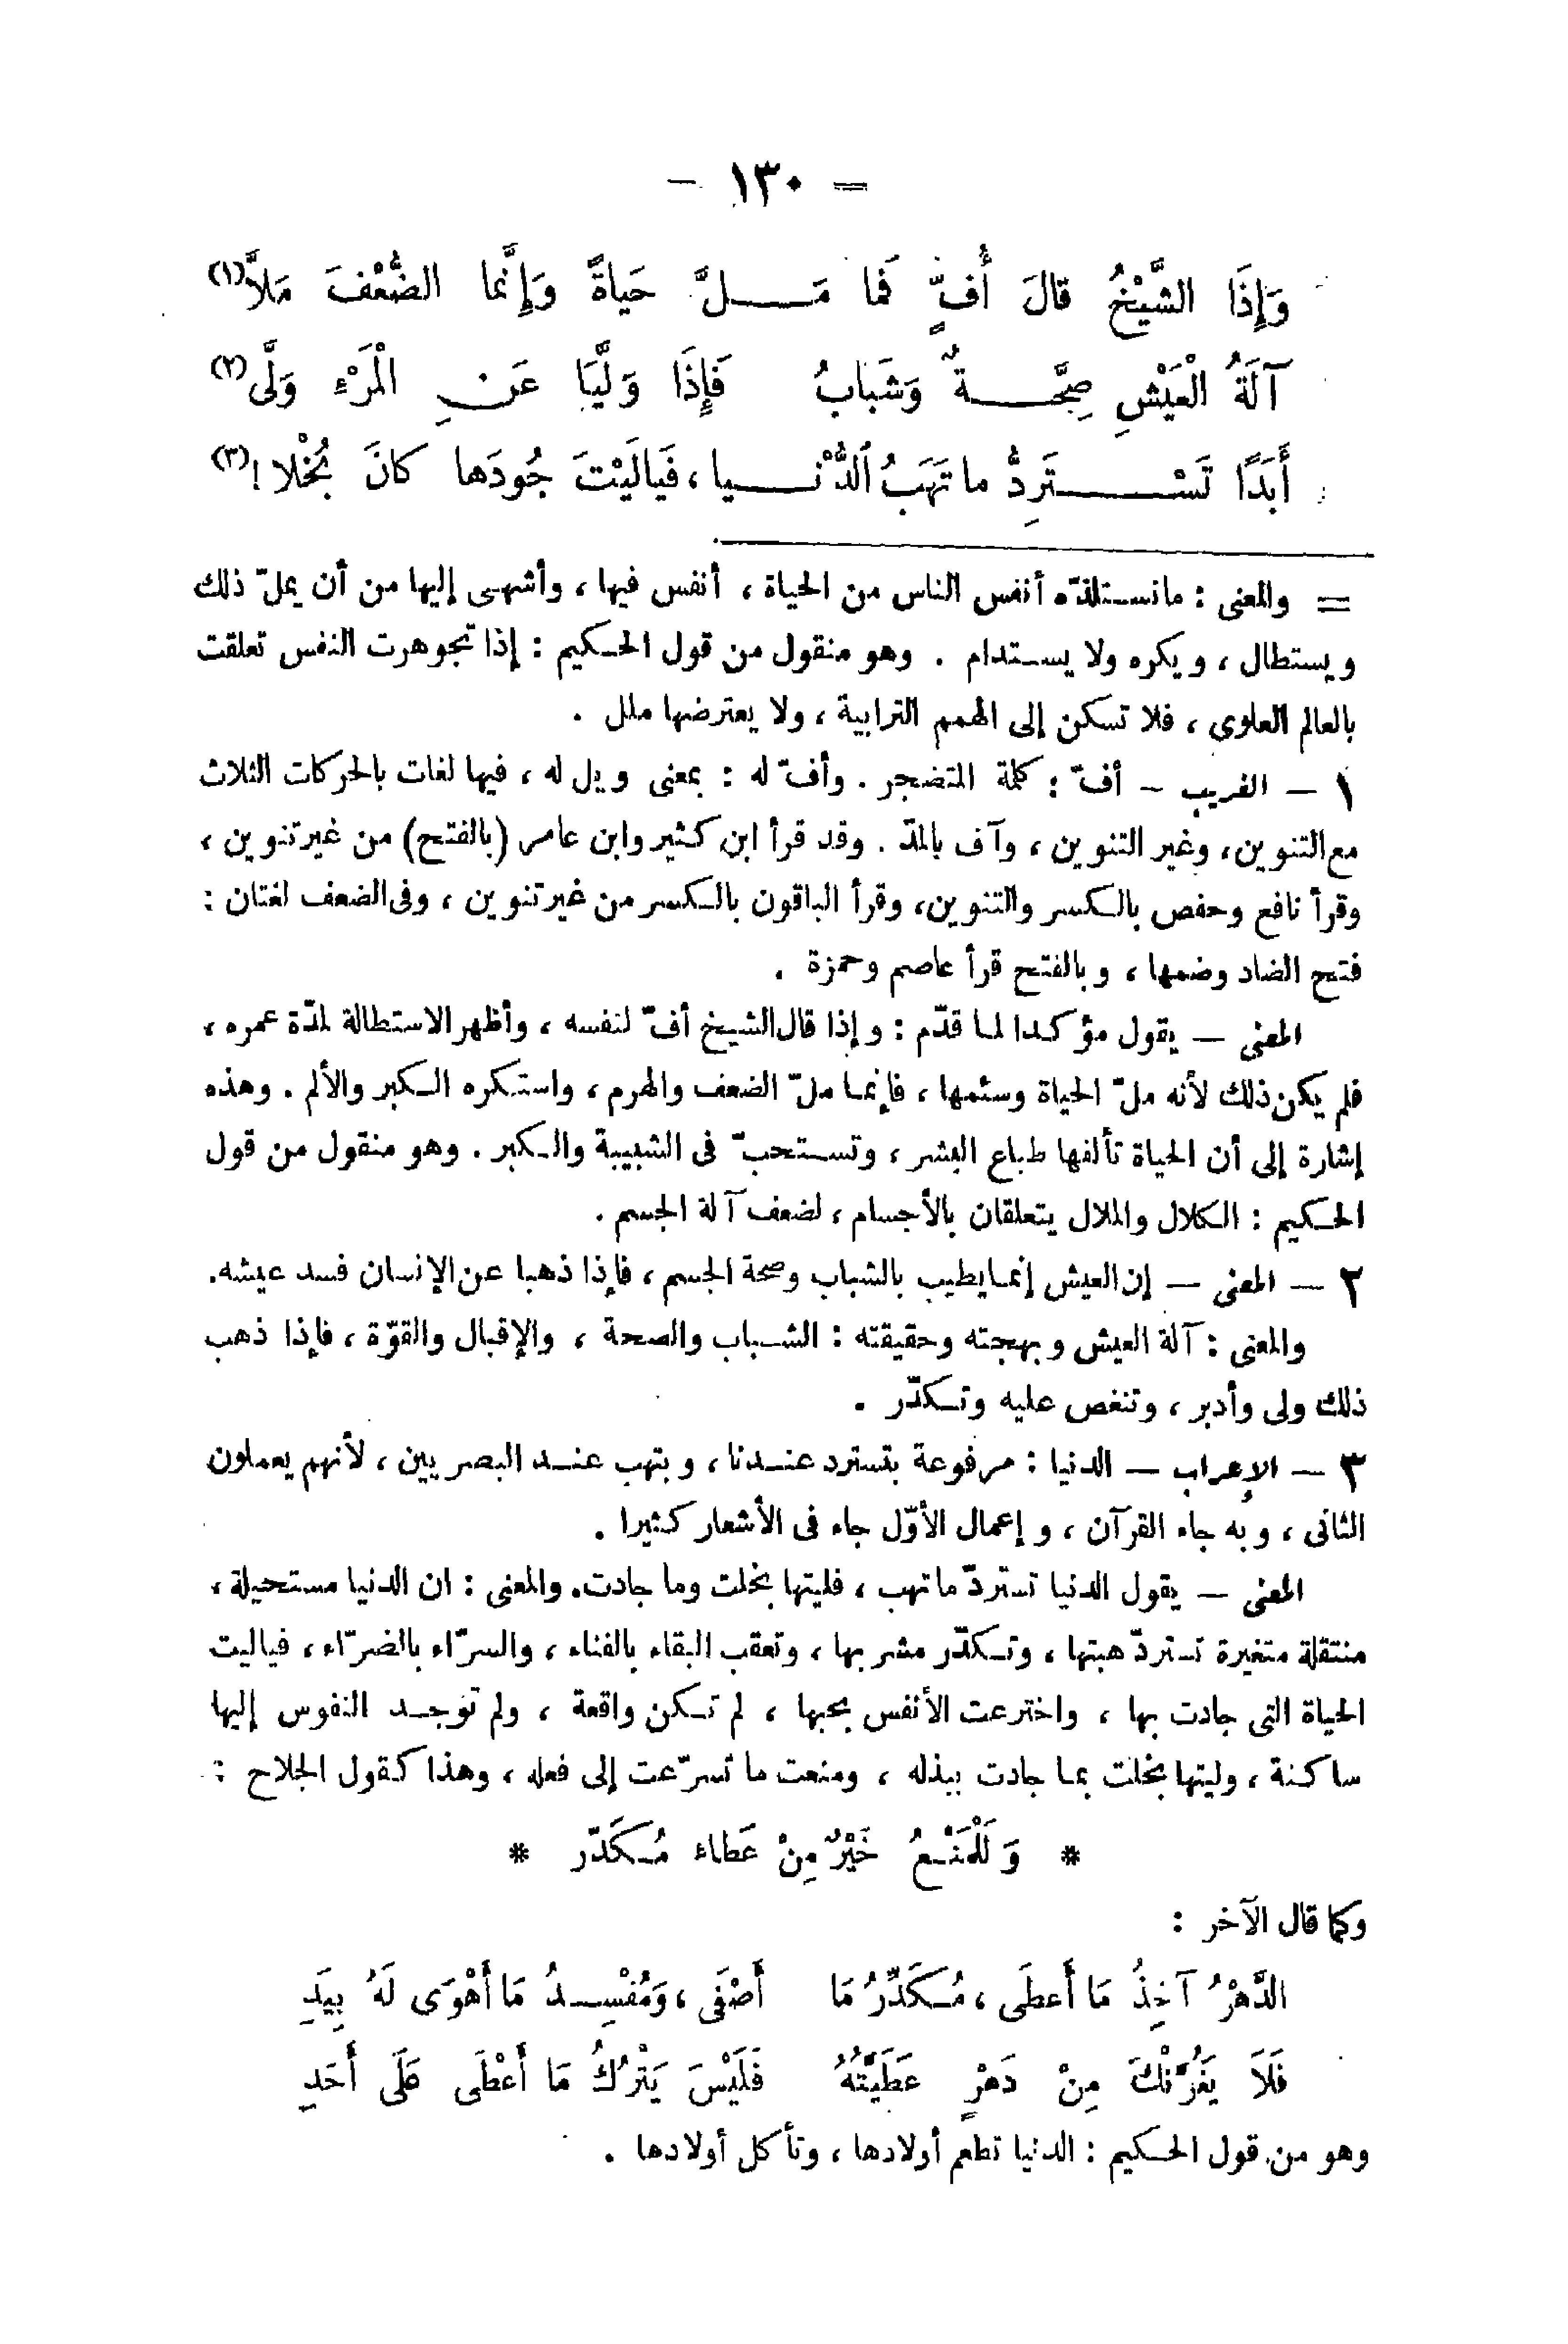 = ١٣٠ -
وَإِذَا الشَّيْخُ قالَ أُفٍّ فَما مَـــلَّ حَياةً وَإِنَّما الضُّعْفَ مَلاَّ (١)
آلَةُ الْعَيْشِ صِحَّـــةٌ وَشَبَابُ فَإِذَا وَلَّيَا عَنِ الْمَرْءِ وَلَّى (٢)
أَبَدًا تَسْـــتَرِدُّ ما تَهَبُ الدُّنْـــيا، فَيالَيْتَ جُودَها كانَ بُخْلا! (٣)
= والمعنى : مانستلذّه أنفس الناس من الحياة ، أنفس فيها ، وأشهى إليها من أن يملّ ذلك
ويستطال ، ويكره ولا يستدام . وهو منقول من قول الحكيم : إذا تجوهرت النفس تعلقت
بالعالم العلوى ، فلا تسكن إلى الهمم الترابية ، ولا يعترضها ملل .
١ — الغريب — أفّ : كلمة المتضجر . وأفّ له : بمعنى ويل له ، فيها لغات بالحركات الثلاث
مع التنوين، وغير التنوين ، وآف بالمدّ . وقد قرأ ابن كثير وابن عامر (بالفتح) من غير تنوين ،
وقرأ نافع وحفص بالكسر والتنوين، وقرأ الباقون بالكسر من غير تنوين ، وفى الضعف لغتان :
فتح الضاد وضمها ، وبالفتح قرأ عاصم وحمزة .
المعنى — يقول مؤكدا لما قدّم : وإذا قال الشيخ أفّ لنفسه ، وأظهر الاستطالة لمدّة عمره ،
فلم يكن ذلك لأنه ملّ الحياة وسئمها ، فإنما ملّ الضعف والهرم ، واستكره الكبر والألم . وهذه
إشارة إلى أن الحياة تألفها طباع البشر ، وتستحبّ فى الشبيبة والكبر . وهو منقول من قول
الحكيم : الكلال والملال يتعلقان بالأجسام ، لضعف آلة الجسم .
٢ — المعنى — إن العيش إنما يطيب بالشباب وصحة الجسم ، فإذا ذهبا عن الإنسان فسد عيشه.
والمعنى : آلة العيش وبهجته وحقيقته : الشباب والصحة ، والإقبال والقوّة ، فإذا ذهب
ذلك ولى وأدبر ، وتنغص عليه وتكدّر .
٣ — الإعراب — الدنيا : مرفوعة بتسترد عندنا ، وبتهب عند البصريين ، لأنهم يعملون
الثانى ، وبه جاء القرآن ، وإعمال الأوّل جاء فى الأشعار كثيرا .
المعنى — يقول الدنيا تستردّ ما تهب ، فليتها بخلت وما جادت. والمعنى : ان الدنيا مستحيلة ،
منتقلة متغيرة تستردّ هبتها ، وتكدّر مشربها ، وتعقب البقاء بالفناء ، والسرّاء بالضرّاء ، فياليت
الحياة التى جادت بها ، واخترعت الأنفس بحبها ، لم تكن واقعة ، ولم توجد النفوس إليها
ساكنة ، وليتها بخلت بما جادت ببذله ، ومنعت ما تسرّعت إلى فعله ، وهذا كقول الجلاح :
* وَلَلْمَنْعُ خَيْرٌ مِنْ عَطاء مُكَدّر *
وكما قال الآخر :
الدَّهْرُ آخِذُ مَا أَعطَى ، مُكَدِّرُ مَا أَصْفَى ، وَمُفْسِدُ مَا أَهْوَى لَهُ بِيَدِ
فَلَا يَغُرَّنْكَ مِنْ دَهْرٍ عَطِيَّتُهُ فَلَيْسَ يَتْرُكُ مَا أَعْطَى عَلَى أَحَدِ
وهو من قول الحكيم : الدنيا تطعم أولادها ، وتأكل أولادها .